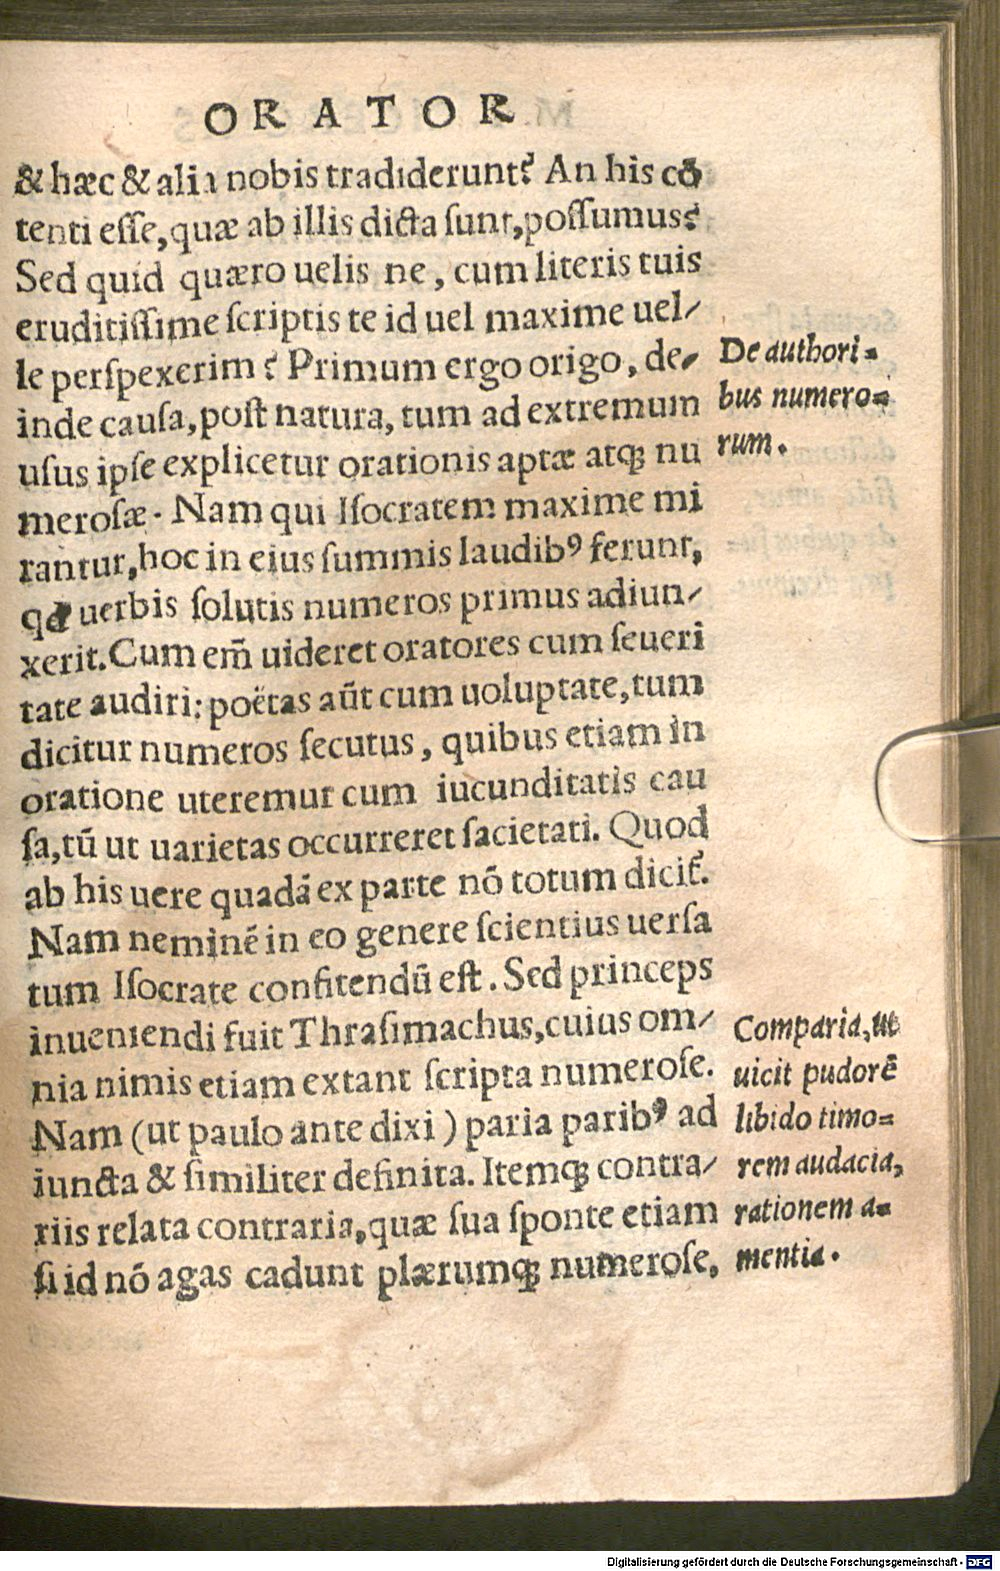 ORATOR
& hæc & alia nobis tradiderunt? An his cō
tenti esse, quæ ab illis dicta sunt, possumus?
Sed quid quæro uelis ne, cum literis tuis
eruditissime scriptis te id uel maxime uel/
le perspexerim? Primum ergo origo, de/
inde causa, post natura, tum ad extremum
usus ipse explicetur orationis aptæ atqꝫ nu
merosæ. Nam qui Isocratem maxime mi
rantur, hoc in eius summis laudibꝰ ferunt,
qđ uerbis solutis numeros primus adiun/
xerit. Cum em̄ uideret oratores cum seueri
tate audiri: poëtas aūt cum uoluptate, tum
dicitur numeros secutus, quibus etiam in
oratione uteremur cum iucunditatis cau
sa, tū ut uarietas occurreret sacietati. Quod
ab his uere quadā ex parte nō totum dicit̃.
Nam neminē in eo genere scientius uersa
tum Isocrate confitendū est. Sed princeps
inueniendi fuit Thrasimachus, cuius om/
nia nimis etiam extant scripta numerose.
Nam (ut paulo ante dixi) paria paribꝰ ad
iuncta & similiter definita. Itemqꝫ contra/
riis relata contraria, quæ sua sponte etiam
si id nō agas cadunt plærumqꝫ numerose,
De authori=
bus numero=
rum.
Comparia, ut
uicit pudorē
libido timo=
rem audacia,
rationem a=
mentia.
Digitalisierung gefördert durch die Deutsche Forschungsgemeinschaft - DFG